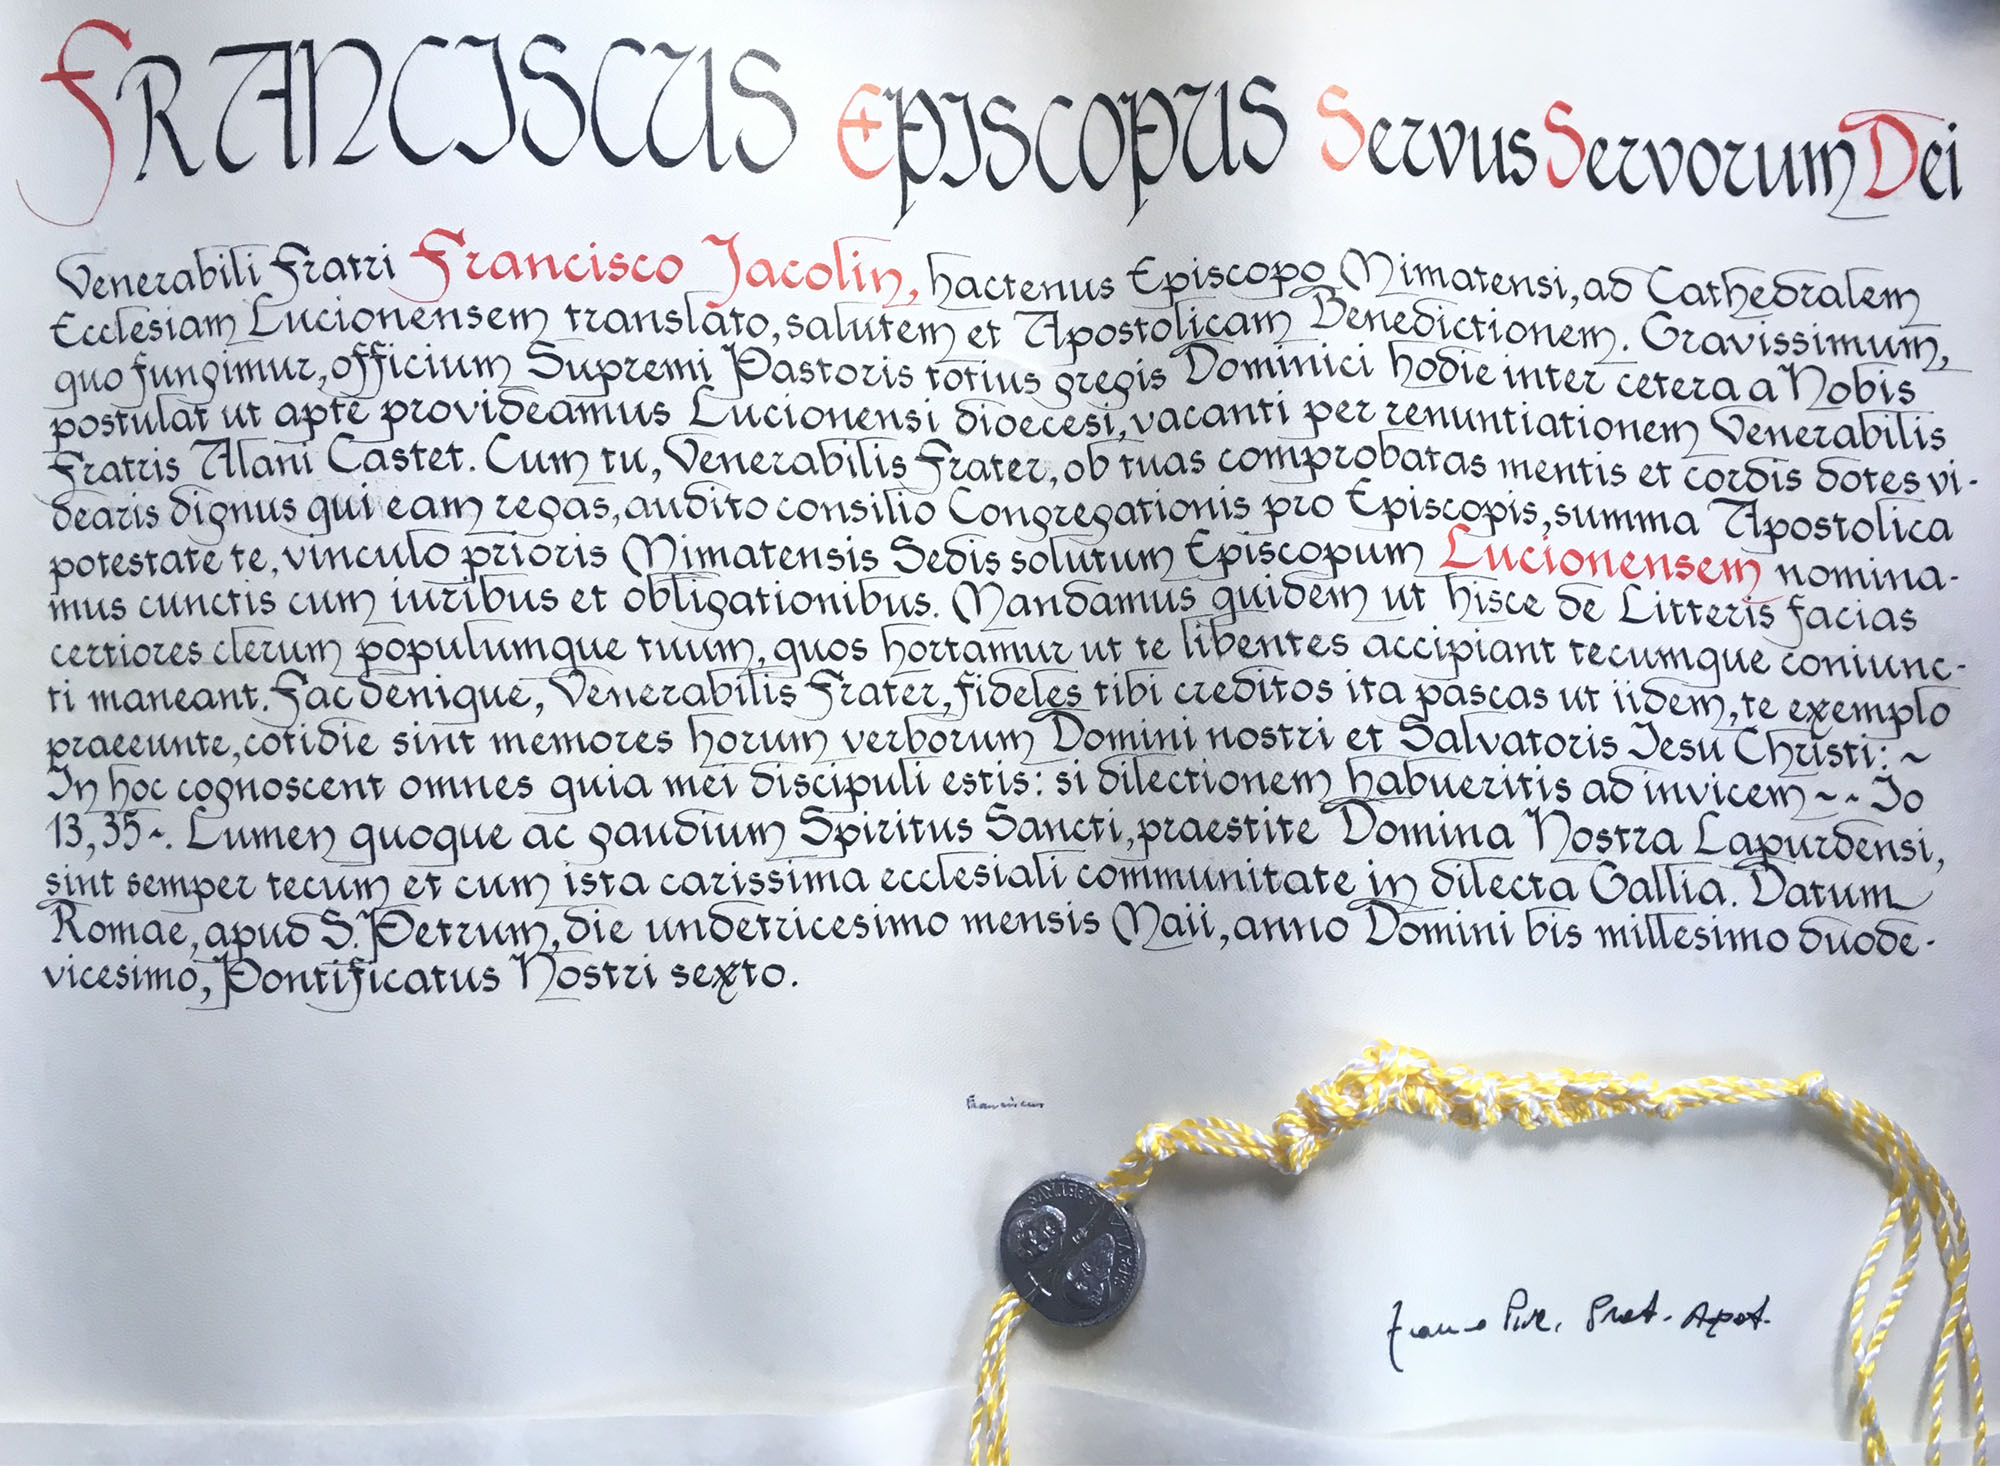 FRANCISCUS EPISCOPUS Servus Servorum Dei
Venerabili Fratri Francisco Jacolin, hactenus Episcopo Mimatensi, ad Cathedralem
Ecclesiam Lucionensem translato, salutem et Apostolicam Benedictionem. Gravissimum,
quo fungimur, officium Supremi Pastoris totius gregis Dominici hodie inter cetera a Nobis
postulat ut apte provideamus Lucionensi dioecesi, vacanti per renuntiationem Venerabilis
Fratris Alani Castet. Cum tu, Venerabilis Frater, ob tuas comprobatas mentis et cordis dotes vi-
dearis dignus qui eam regas, audito consilio Congregationis pro Episcopis, summa Apostolica
potestate te, vinculo prioris Mimatensis Sedis solutum Episcopum Lucionensem nomina-
mus cunctis cum iuribus et obligationibus. Mandamus quidem ut hisce de Litteris facias
certiores clerum populumque tuum, quos hortamur ut te libentes accipiant tecumque coniunc-
ti maneant. Fac denique, Venerabilis Frater, fideles tibi creditos ita pascas ut iidem, te exemplo
praeeunte, cotidie sint memores horum verborum Domini nostri et Salvatoris Iesu Christi: ~
In hoc cognoscent omnes quia mei discipuli estis: si dilectionem habueritis ad invicem ~ ~ Io
13,35 ~. Lumen quoque ac gaudium Spiritus Sancti, praestite Domina Nostra Lapurdensi,
sint semper tecum et cum ista carissima ecclesiali communitate in dilecta Gallia. Datum
Romae, apud S. Petrum, die undetricesimo mensis Maii, anno Domini bis millesimo duode-
vicesimo, Pontificatus Nostri sexto.
Franciscus
S. PETRVS
Prot. Apost.